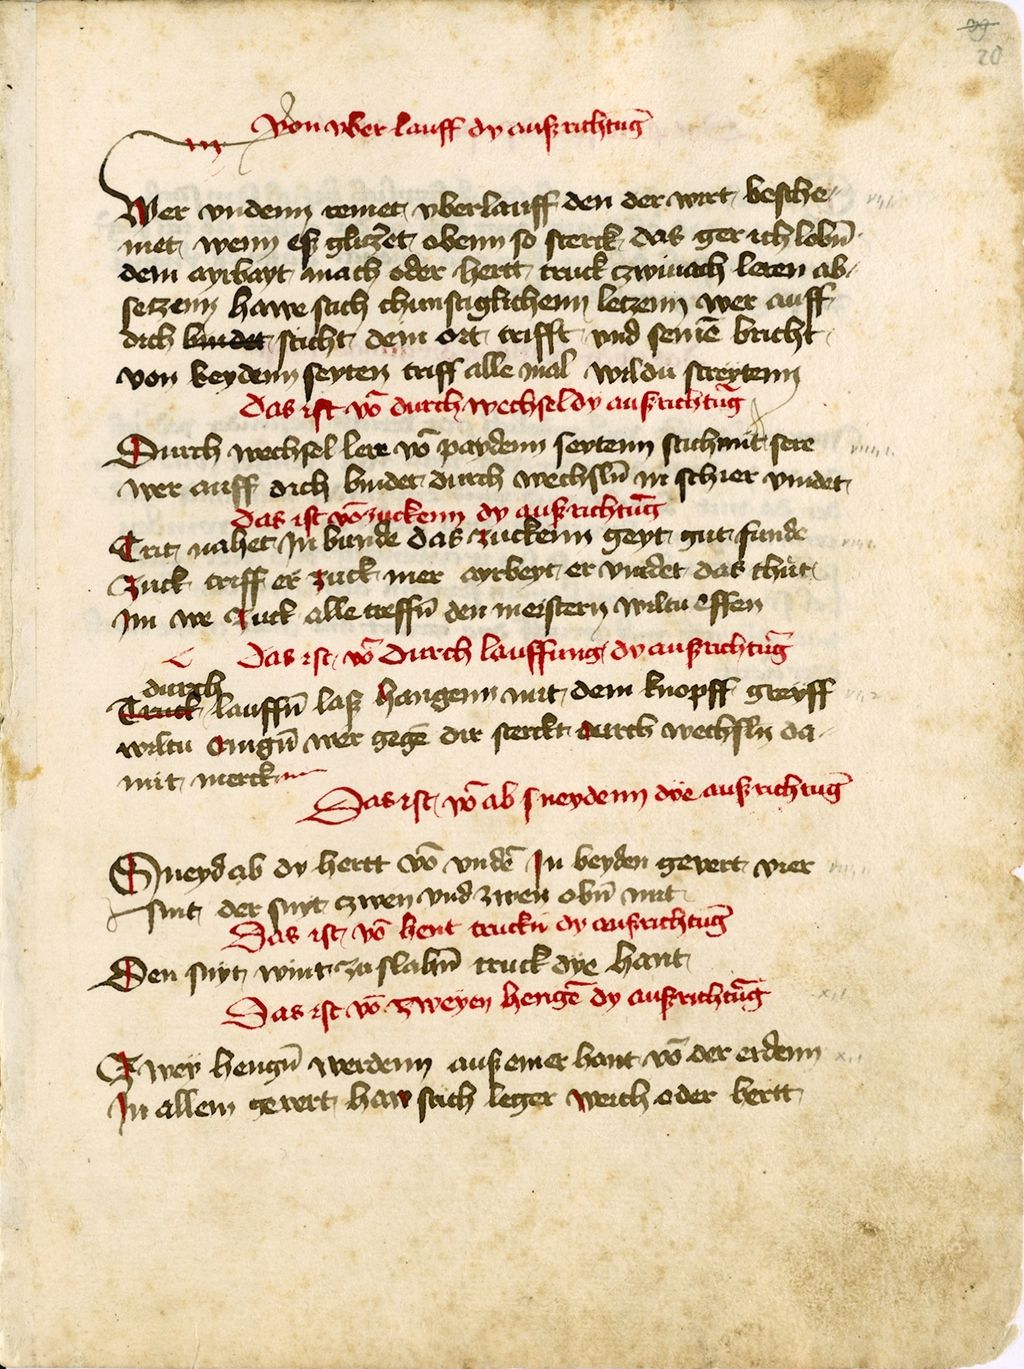 20
Von vber lauff dy außrichtūg
Wer vndenn remet vberlauff den der wirt besche-
met wenn eß gliczet obenn so sterck das ger ich lobn̄
dem ayrbayt mach oder hertt truck czwivach leren ab-
setzenn hawe stich chunstiglichenn letzenn wer auff
dich bindet sticht dem ort trifft vnd seinē bricht
von beydenn seyten triff alle mal wildu streytenn
Das ist vō durch wechsel dy außrichtūg
Durch wechsel lere vō paydenn seytenn stich mit sere
wer auff dich bindet durch wechsln̄ in schier vindet
das ist vō zuckenn dy außrichtūg
Trit nahet In bunde das zuckenn geyt gut funde
Zuck triff er zuck mer ayrbeyt er vindet das thut
Im we Zuck alle treffn̄ den meistern wiltu effen
Das ist vō durch lauffung dy außrichtūg
durch
Truck lauffn̄ laß hangenn mit dem knopff greyff
wiltu Ringn̄ wer gegē dir sterckt durch wechsln da-
mit merck
Das ist vō ab sneydenn dye außrichtūg
Sneyd ab dy hertt vō vndē In beyden gevert vier
sint der snyt czwen vnd zwen obn̄ mit
Das ist vō hent truckn̄ dy außrichtūg
Den snyt wint zu slahn̄ truck dye hant
Das ist vō zweyen hengē dy außrichtūg
Zwey hengn̄ werdenn auß einer hant vō der erdenn
In allem gevert haw stich leger weich oder hertt